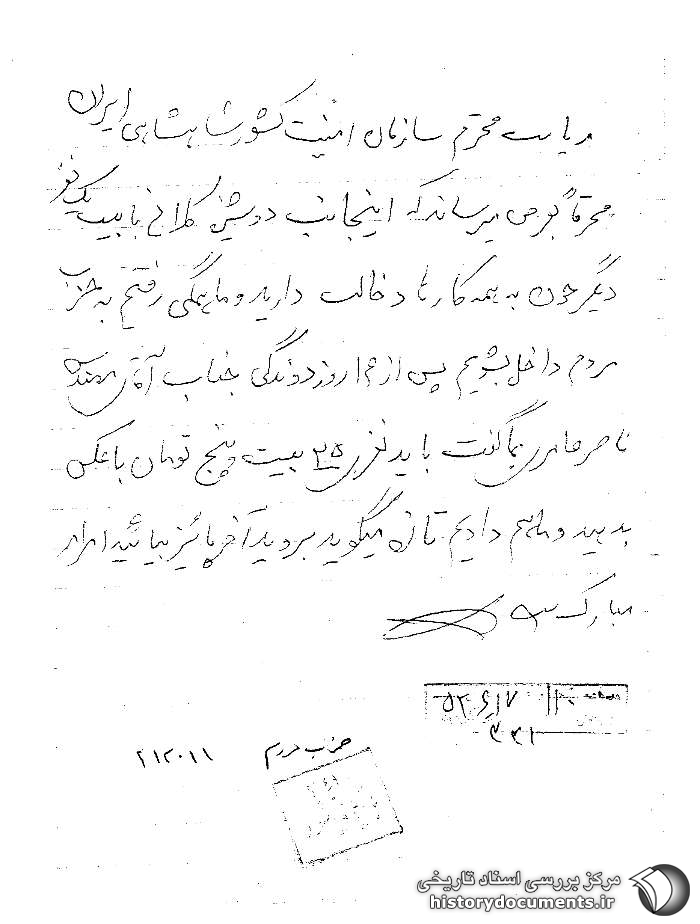 ریاست محترم سازمان امنیت کشور شاهنشاهی ایران
محترماً بعرض میرساند که اینجانب درویش کلانی با بیست یک نفر
دیگر چون به همه کارها دخالت دارید و ما همگی رفتیم به حزب
مردم داخل بشویم پس از ۱۳ روز دوندگی جناب آقای مهندس
ناصر عامری بما گفت باید نفری ۲۵ بیست و پنج تومان با عکس
بدهید و ما هم دادیم تازه میگوید بروید آخر پائیز بیائید
مبارک
۵۲٫۶٫۱۷
۳۳۱
حزب مردم ۲۱۲۰۱۱
مرکز بررسی اسناد تاریخی
historydocuments.ir